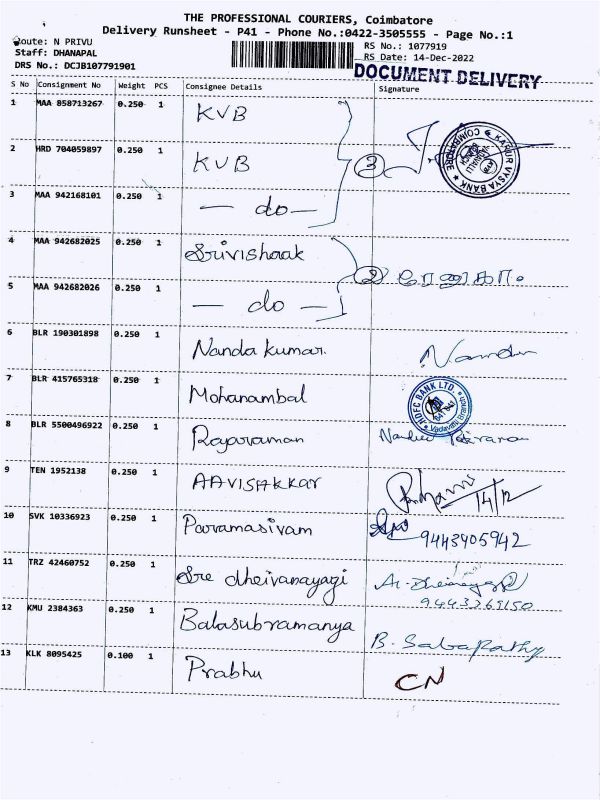 THE PROFESSIONAL COURIERS, Coimbatore
Delivery Runsheet - P41 - Phone No.:0422-3505555 - Page No.:1
Route: N PRIVU
Staff: DHANAPAL
DRS No.: DCJB107791901
RS No.: 1077919
RS Date: 14-Dec-2022
DOCUMENT DELIVERY
S No Consignment No Weight PCS Consignee Details Signature
1 MAA 858713267 0.250 1 KVB
2 HRD 704059897 0.250 1 KVB 3
KARUR VYSYA BANK COIMBATORE
3 MAA 942168101 0.250 1 — do —
4 MAA 942682025 0.250 1 Srivishaak
2
5 MAA 942682026 0.250 1 — do —
6 BLR 190301898 0.250 1 Nanda kumar.
7 BLR 415765318 0.250 1 Mohanambal
HDFC BANK LTD. Vadavalli Branch
8 BLR 5500496922 0.250 1 Rajaraman
9 TEN 1952138 0.250 1 AAVISAKKAR 14/12
10 SVK 10336923 0.250 1 Paramasivam 9443405942
11 TRZ 42460752 0.250 1 Sre dheivanayagi
12 KMU 2384363 0.250 1 Balasubramanya B. SabaPathy
13 KLK 8095425 0.100 1 Prabhu CN